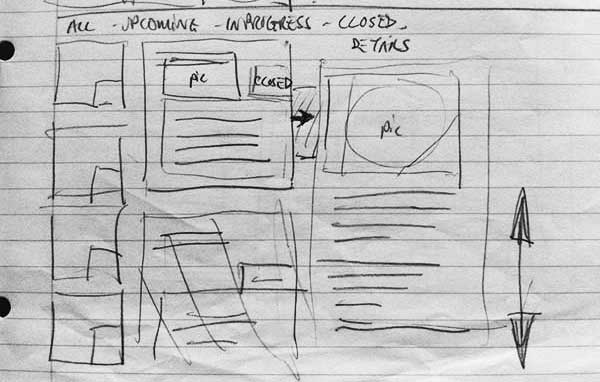 ALL - UPCOMING - INPROGRESS - CLOSED.
DETAILS
pic
CLOSED
pic